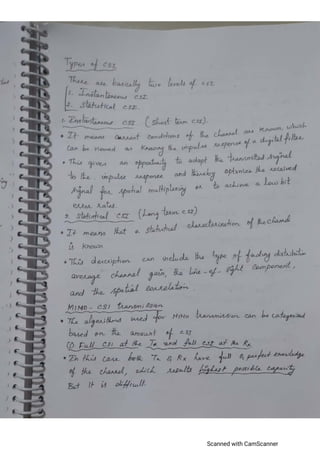 Types of CSI
There are basically two levels of CSI
1. Instantaneous CSI
2. Statistical CSI.
1. Instantaneous CSI (Short term CSI).
• It means current conditions of the channel are known, which
can be viewed as knowing the impulse response of a digital filter.
• This gives an opportunity to adapt the transmitted signal
to the impulse response and thereby optimize the received
signal for spatial multiplexing or to achieve a low bit
error rates.
2. Statistical CSI (Long term CSI)
• It means that a statistical characterization of the channel
is known
• This description can include the type of fading distribution
average channel gain, the line-of-sight component,
and the spatial correlation.
MIMO - CSI transmission
• The algorithms used for MIMO transmission can be categorized
based on the amount of CSI
① Full CSI at the Tx and full CSI at the Rx
• In this case both Tx & Rx have full & perfect knowledge
of the channel, which results highest possible capacity
But it is difficult.
Scanned with CamScanner